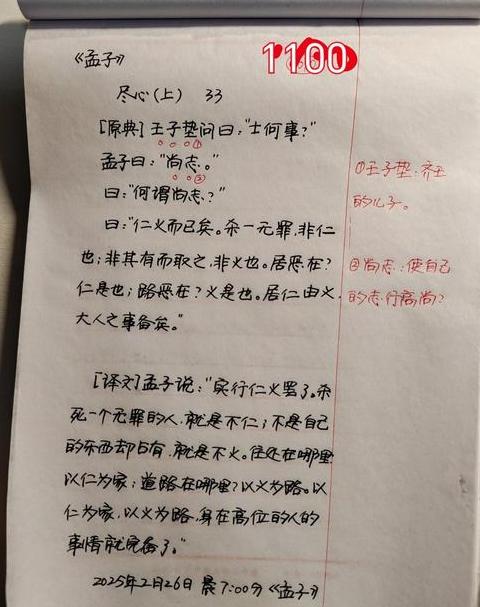 《孟子》
1100
尽心(上) 33
[原典]王子垫问曰:"士何事?"
孟子曰:"尚志。"
曰:"何谓尚志?"
曰:"仁义而已矣。杀一无罪,非仁
也;非其有而取之,非义也。居恶在?
仁是也;路恶在?义是也。居仁由义,
大人之事备矣。"
①王子垫:齐王
的儿子。
②尚志:使自己
的志行高尚?
[译文]孟子说:"实行仁义罢了。杀
死一个无罪的人,就是不仁;不是自己
的东西却占有,就是不义。住处在哪里
以仁为家;道路在哪里?以义为路。以
仁为家,以义为路,身在高位的人的
事情就完备了。"
2025年2月26日 晨7:00分《孟子》